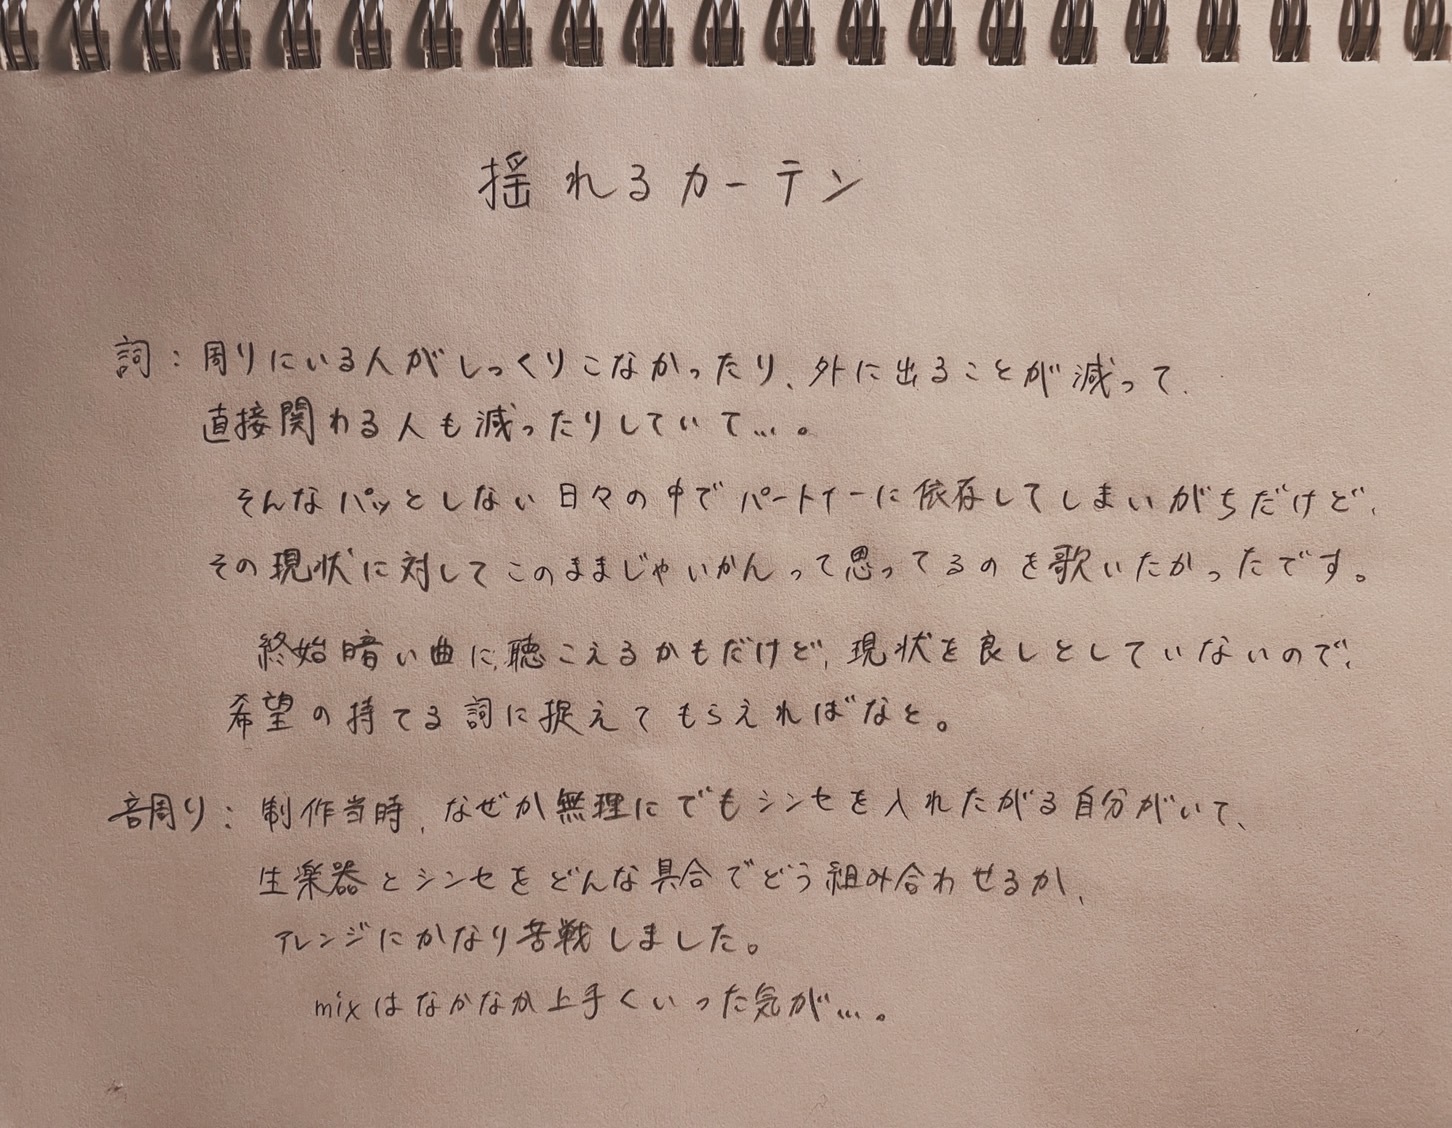 揺れるカーテン
詞：周りにいる人がしっくりこなかったり、外に出ることが減って、
直接関わる人も減ったりしていて…。
そんなパッとしない日々の中でパートイーに依存してしまいがちだけど、
その現状に対してこのままじゃいかんって思ってるのを歌いたかったです。
終始暗い曲に聴こえるかもだけど、現状を良しとしていないので、
希望の持てる詞に捉えてもらえればなと。
音周り：制作当時、なぜか無理にでもシンセを入れたがる自分がいて、
生楽器とシンセをどんな具合でどう組み合わせるか、
アレンジにかなり苦戦しました。
mixはなかなか上手くいった気が…。